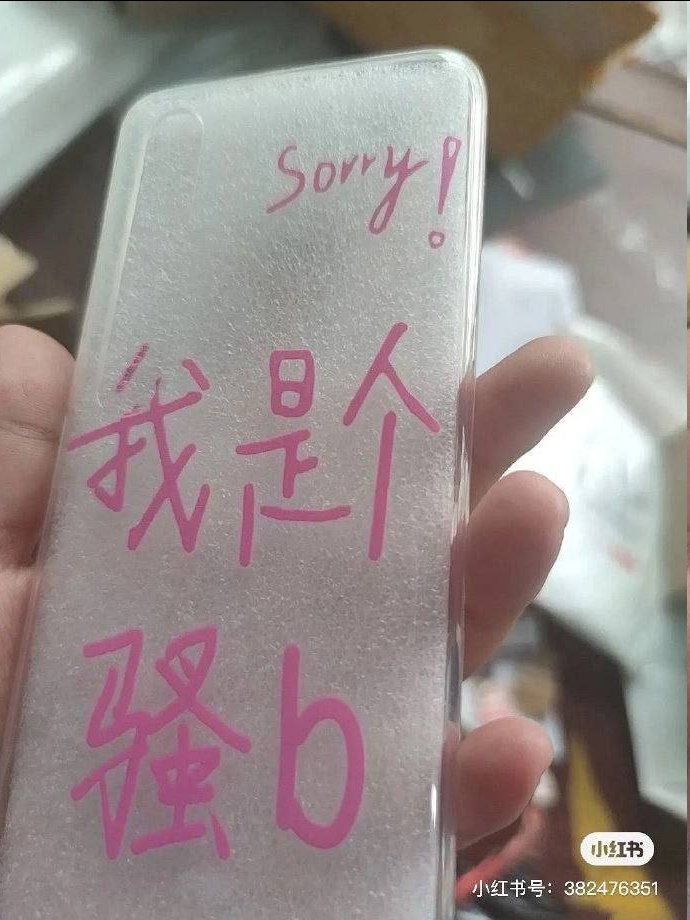 Sorry!
我是个
骚b
小红书
小红书号：382476351